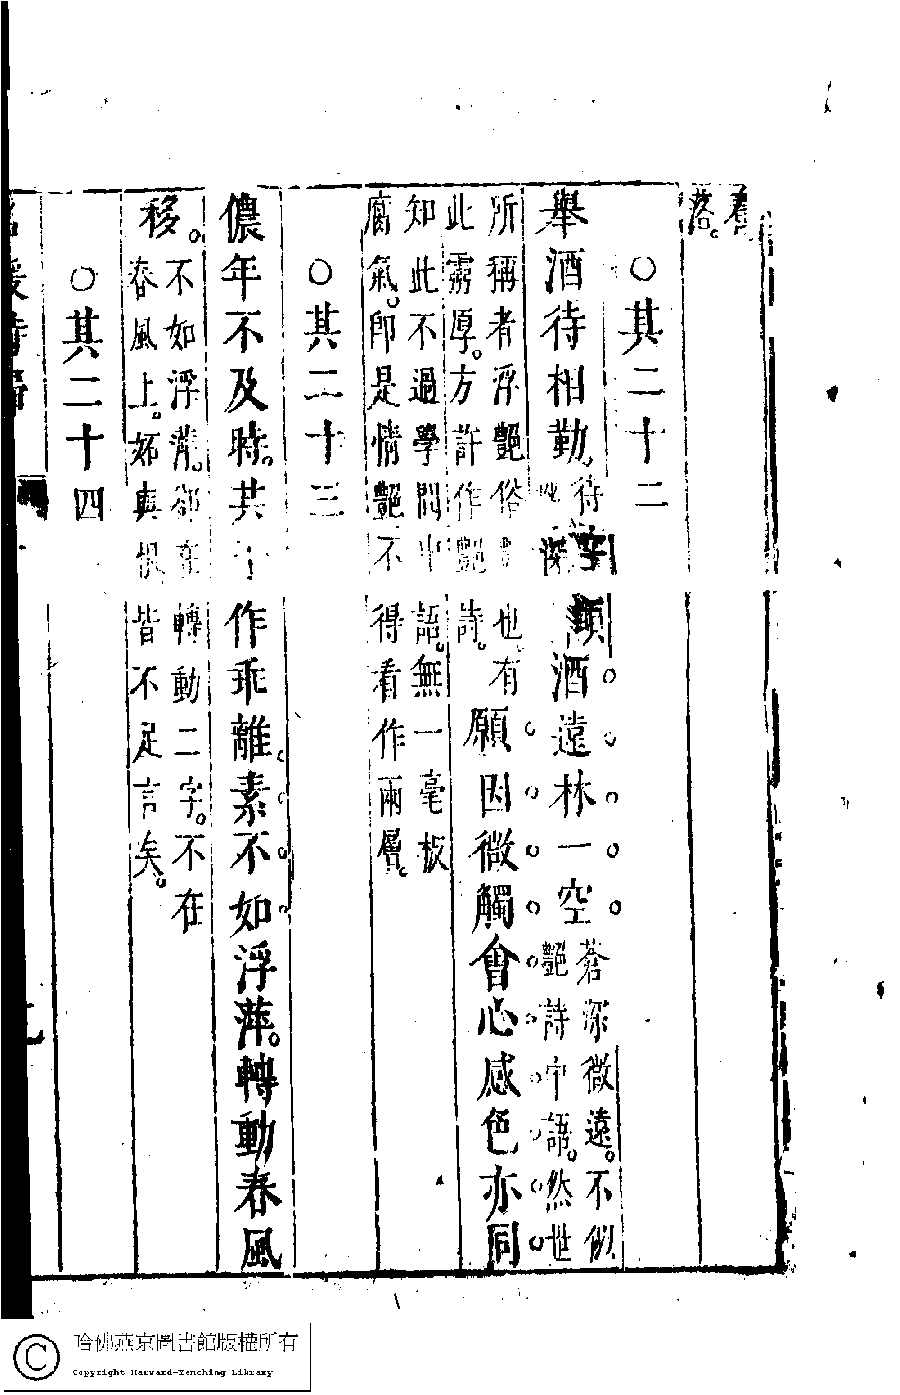 着
落。
○其二十二
舉酒待相勤。
待字
深
酒遠林一空
蒼深微遠。不似
艷詩中語。然世
所稱者浮艷俗 也。有
此霧厚。方許作艷詩。
願因微觸會心感色亦同
知此不過學問中語。無一毫板
腐氣。即是情艷不得看作兩層。
○其二十三
儂年不及時。其于作乖離素不如浮萍。轉動春風
移。
不如浮萍。卻在轉動二字。不在
春風上。妬與恨皆不足言矣。
○其二十四
名媛詩歸
哈佛燕京圖書館版權所有
Copyright Harvard-Yenching Library